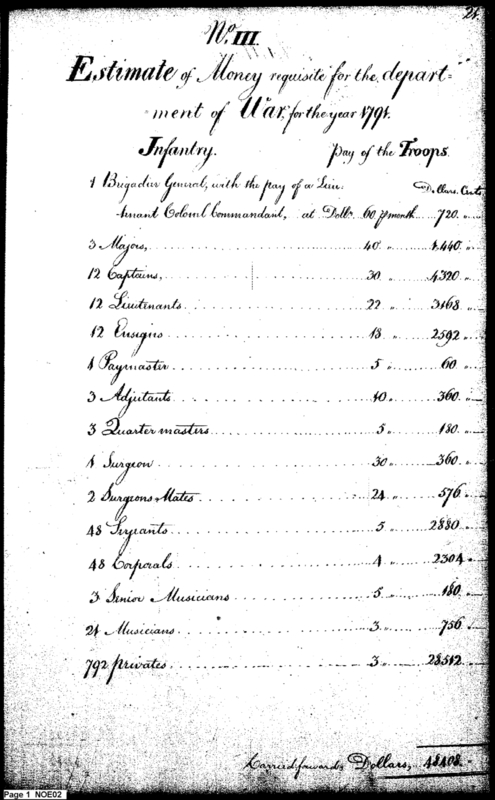 21.
No. III.
Estimate of Money requisite for the depart=
ment of War, for the year 1791.
Infantry. Pay of the Troops.
Dollars. Cents
1 Brigadier General, with the pay of a Lieu-
tenant Colonel Commandant, at Dollrs 60 p month 720. "
3 Majors, 40 " 1.440 "
12 Captains, 30 " 4320 "
12 Lieutenants 22 " 3168 "
12 Ensigns 18 " 2592 "
1 Paymaster 5 " 60. "
3 Adjutants 10 " 360. "
3 Quarter masters 5 " 180. "
1 Surgeon 30 " 360. "
2 Surgeons Mates 24 " 576 "
48 Serjeants 5 " 2880 "
48 Corporals 4 " 2304 "
3 Senior Musicians 5 " 180. "
21 Musicians 3 " 756 "
792 privates 3 " 28512 "
Carried forward, Dollars, 48408. "
Page 1 NOE02